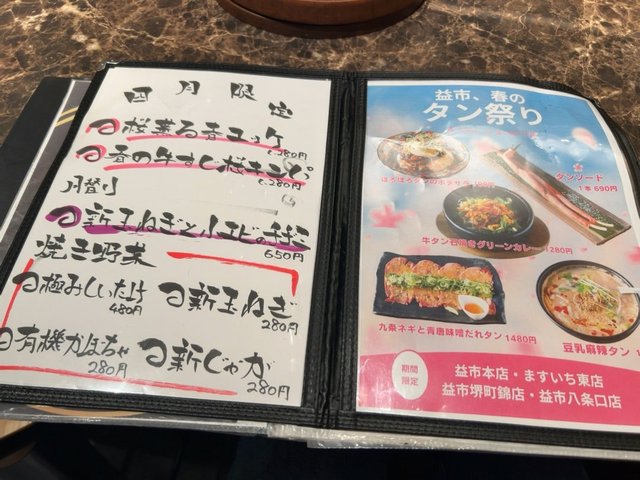 四月限定
桜薫る春ユッケ
1,280円
春の牛すし桜キンパ
1,280円
月替り
新玉ねぎと小エビのチヂミ
650円
焼き野菜
極みしいたけ
480円
新玉ねぎ
280円
有機かぼちゃ
280円
新じゃが
280円
益市、春の
タン祭り
ほろほろタンのポテサラ
タンソード
1本 690円
牛タン石焼きグリーンカレー 1280円
九条ネギと青唐味噌だれタン 1480円
豆乳麻辣タン
期間
限定
益市本店・ますいち東店
益市堺町錦店・益市八条口店